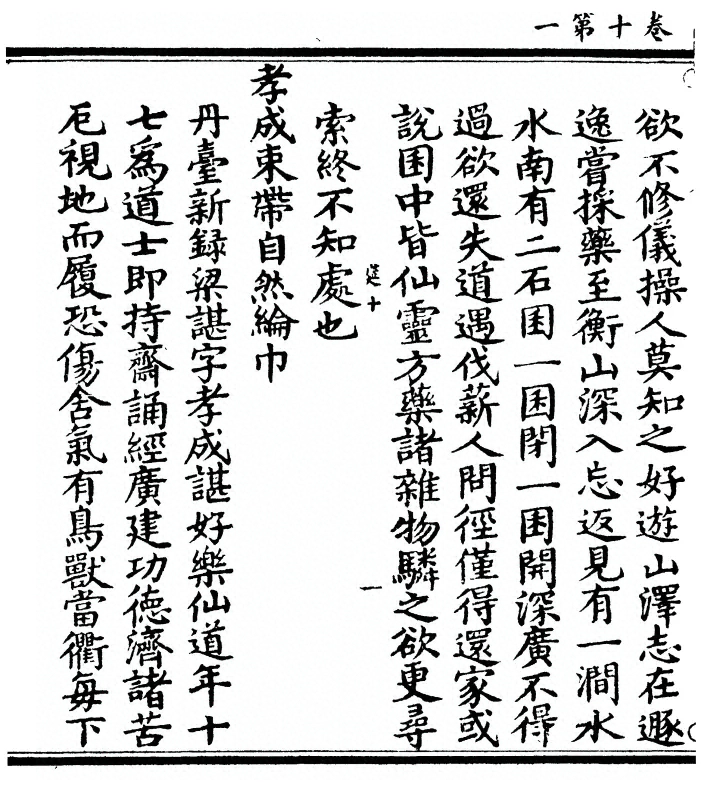 卷十第一
欲不修儀操人莫知之好遊山澤志在遯
逸嘗採藥至衡山深入忘返見有一澗水
水南有二石囷一囷閉一囷開深廣不得
過欲還失道遇伐薪人問徑僅得還家或
說囷中皆仙靈方藥諸雜物驎之欲更尋
索終不知處也
筵十
一
孝成束帶自然綸巾
丹臺新録梁諶字孝成諶好樂仙道年十
七爲道士即持齋誦經廣建功德濟諸苦
厄視地而履恐傷含氣有鳥獸當衢每下